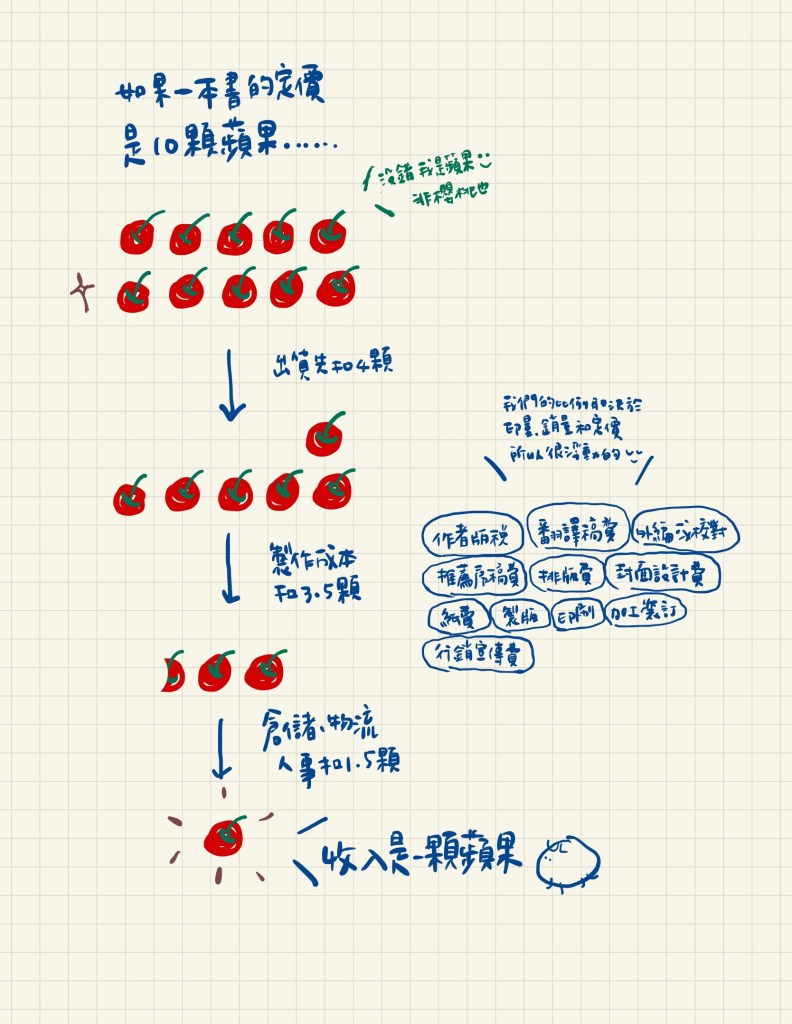 如果一本書的定價
是10顆蘋果......
沒錯我是蘋果
非櫻桃也
出貨先扣4顆
我們的比例取決於
印量、銷量和定價
所以很浮動的
製作成本
扣3.5顆
作者版稅
翻譯稿費
外編或校對
推薦序稿費
排版費
封面設計費
紙費
製版
印刷
加工裝訂
行銷宣傳費
倉儲、物流
人事扣1.5顆
收入是一顆蘋果